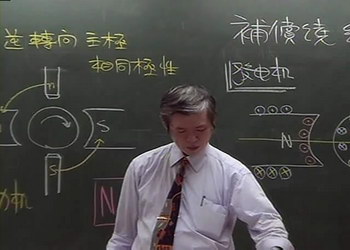 逆轉向主極
相同極性
n
S
S
N
補償繞
發电机
N
机